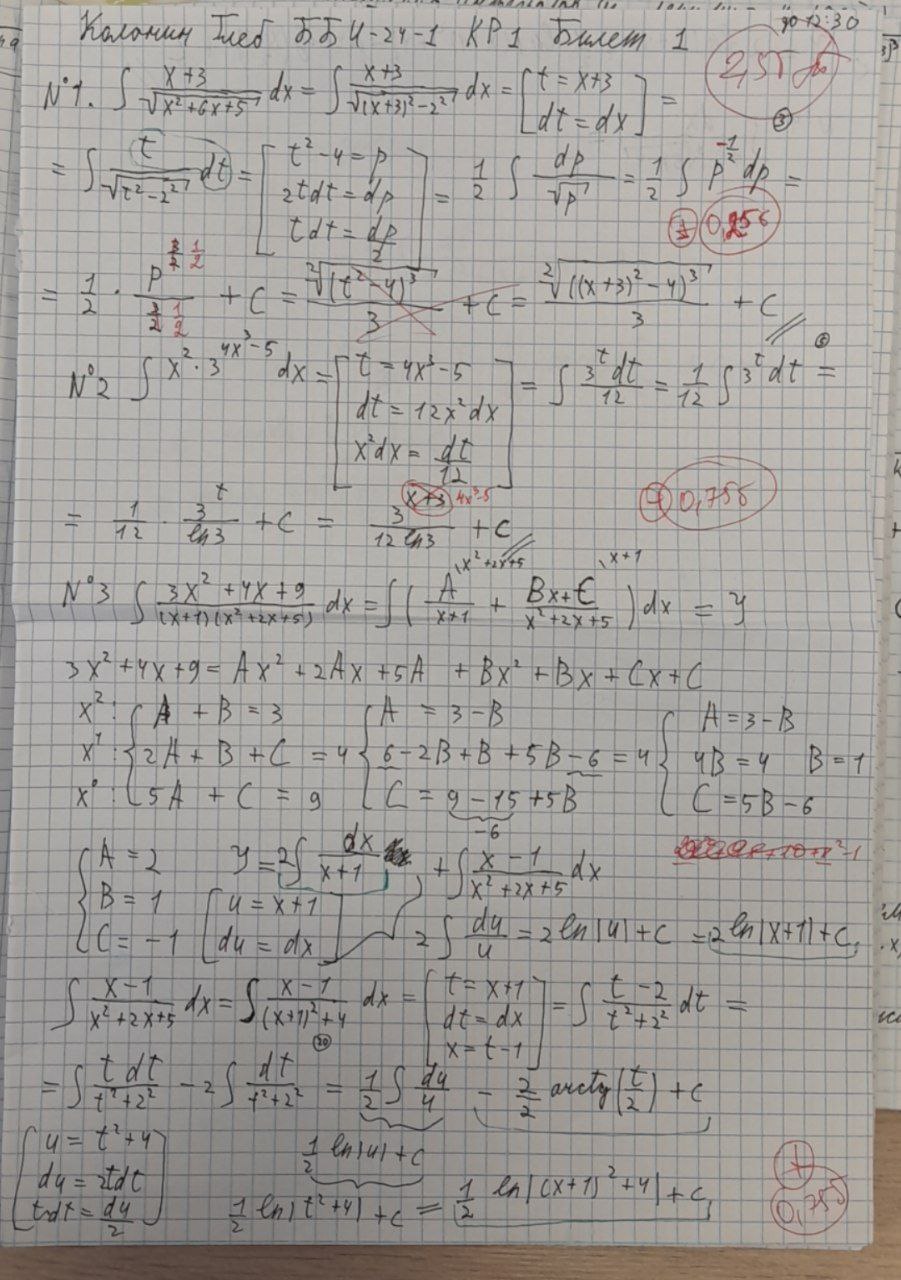 до 12:30
Колонин Глеб ББИ-24-1 КР1 Билет 1
2,55 б
№1. ∫ (x+3)/√(x²+6x+5) dx = ∫ (x+3)/√((x+3)²-2²) dx = [t = x+3; dt = dx] =
= ∫ t/√(t²-2²) dt = [t²-4 = p; 2tdt = dp; tdt = dp/2] = 1/2 ∫ dp/√p = 1/2 ∫ p^(-1/2) dp =
= 1/2 · p^(1/2)/(1/2) + C = ²√((t²-4)³)/3 + C = ²√(((x+3)²-4)³)/3 + C
№2 ∫ x² · 3^(4x³-5) dx = [t = 4x³-5; dt = 12x²dx; x²dx = dt/12] = ∫ 3^t dt/12 = 1/12 ∫ 3^t dt =
0,75б
= 1/12 · 3^t/ln3 + C = 3^(x+3) 4x³-5/(12 ln3) + C
№3 ∫ (3x²+4x+9)/((x+1)(x²+2x+5)) dx = ∫ (A/(x+1) \x²+2x+5 + (Bx+C)/(x²+2x+5) \x+1) dx = y
3x²+4x+9 = Ax²+2Ax+5A + Bx²+Bx+Cx+C
x²: { A + B = 3 { A = 3-B { A = 3-B
x¹: 2A + B + C = 4 { 6-2B+B+5B-6 = 4 { 4B = 4 B = 1
x⁰: 5A + C = 9 { C = 9-15+5B { C = 5B-6
-6
{ A = 2 y = 2∫ dx/(x+1) + ∫ (x-1)/(x²+2x+5) dx
B = 1 [u = x+1
C = -1 du = dx] 2 ∫ du/u = 2 ln|u| + C = 2 ln|x+1| + C,
∫ (x-1)/(x²+2x+5) dx = ∫ (x-1)/((x+1)²+4) dx = [t = x+1; dt = dx; x = t-1] = ∫ (t-2)/(t²+2²) dt =
= ∫ t dt/(t²+2²) - 2 ∫ dt/(t²+2²) = 1/2 ∫ du/u - 2/2 arctg(t/2) + C
[u = t²+4 1/2 ln|u| + C
du = 2tdt
tdt = du/2] 1/2 ln|t²+4| + C = 1/2 ln|(x+1)²+4| + C,
0,75б